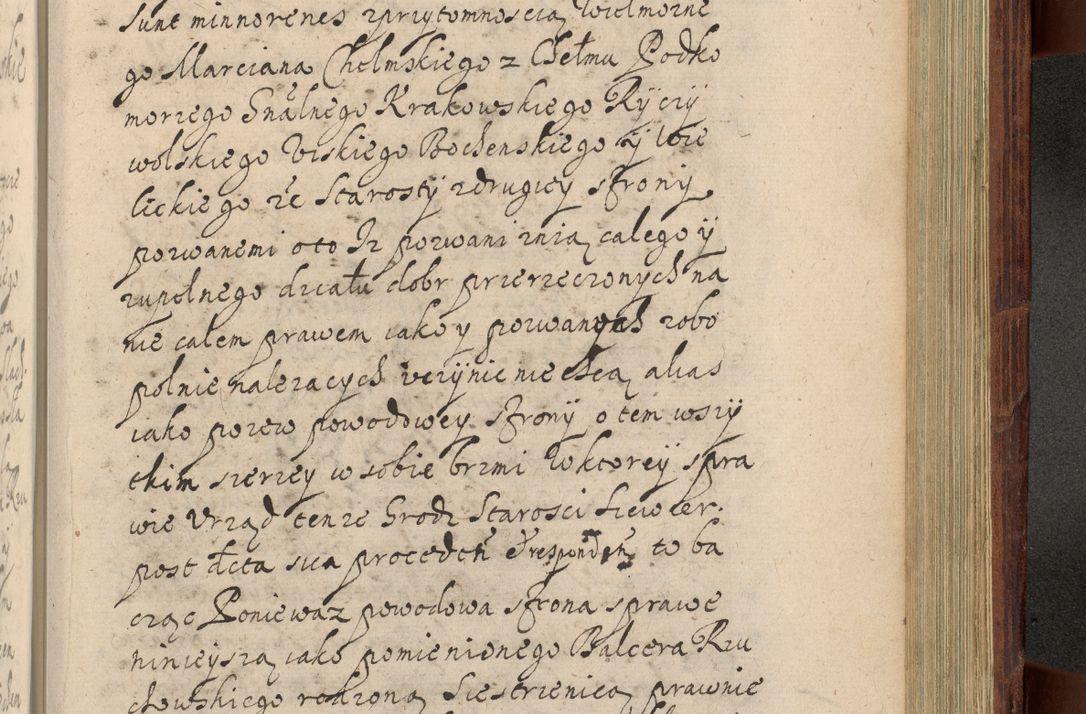 sunt minnorenes zprzytomnoscią Wielmozne
go Marciana Chełmskiego z Chełmu Podko
morzego Gnãlnego Krakowskiego Ryczy
wolskiego Uiskiego Bochenskiego y Wie
lickiego etc Starosty z drugiey strony
pozwanemi oto Iz pozwani znią całego y
zupełnego działu dobr przerzeczonych na
nie całem prawem iako y pozwanych zobo
polnie nalezacych uczynic nie chcą alias
iako pozew powodowey strony o tem wszy
tkim szerzey w sobie brzmi W ktorey spra
wie Urząd tenze Grodz Starosci Siewier.
post dicta sua proceden et responden to ba
cząc Poniewaz powodowa strona sprawe
ninieyszą iako pomienionego Balcera Rzu
chowskiego rodzona Siestrzenica prawnie